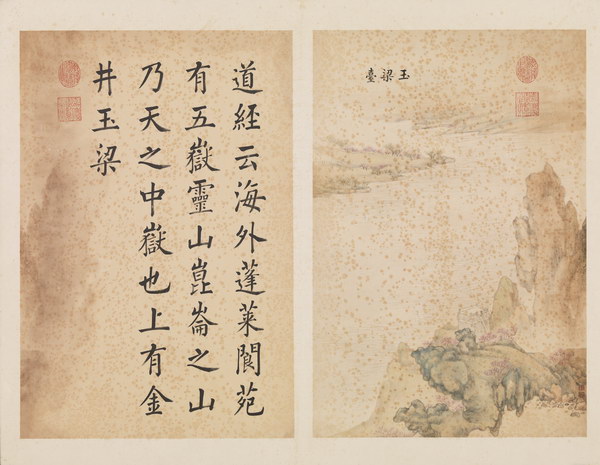 玉梁臺
道經云海外蓬萊閬苑
有五嶽靈山崑崙之山
乃天之中嶽也上有金
井玉梁